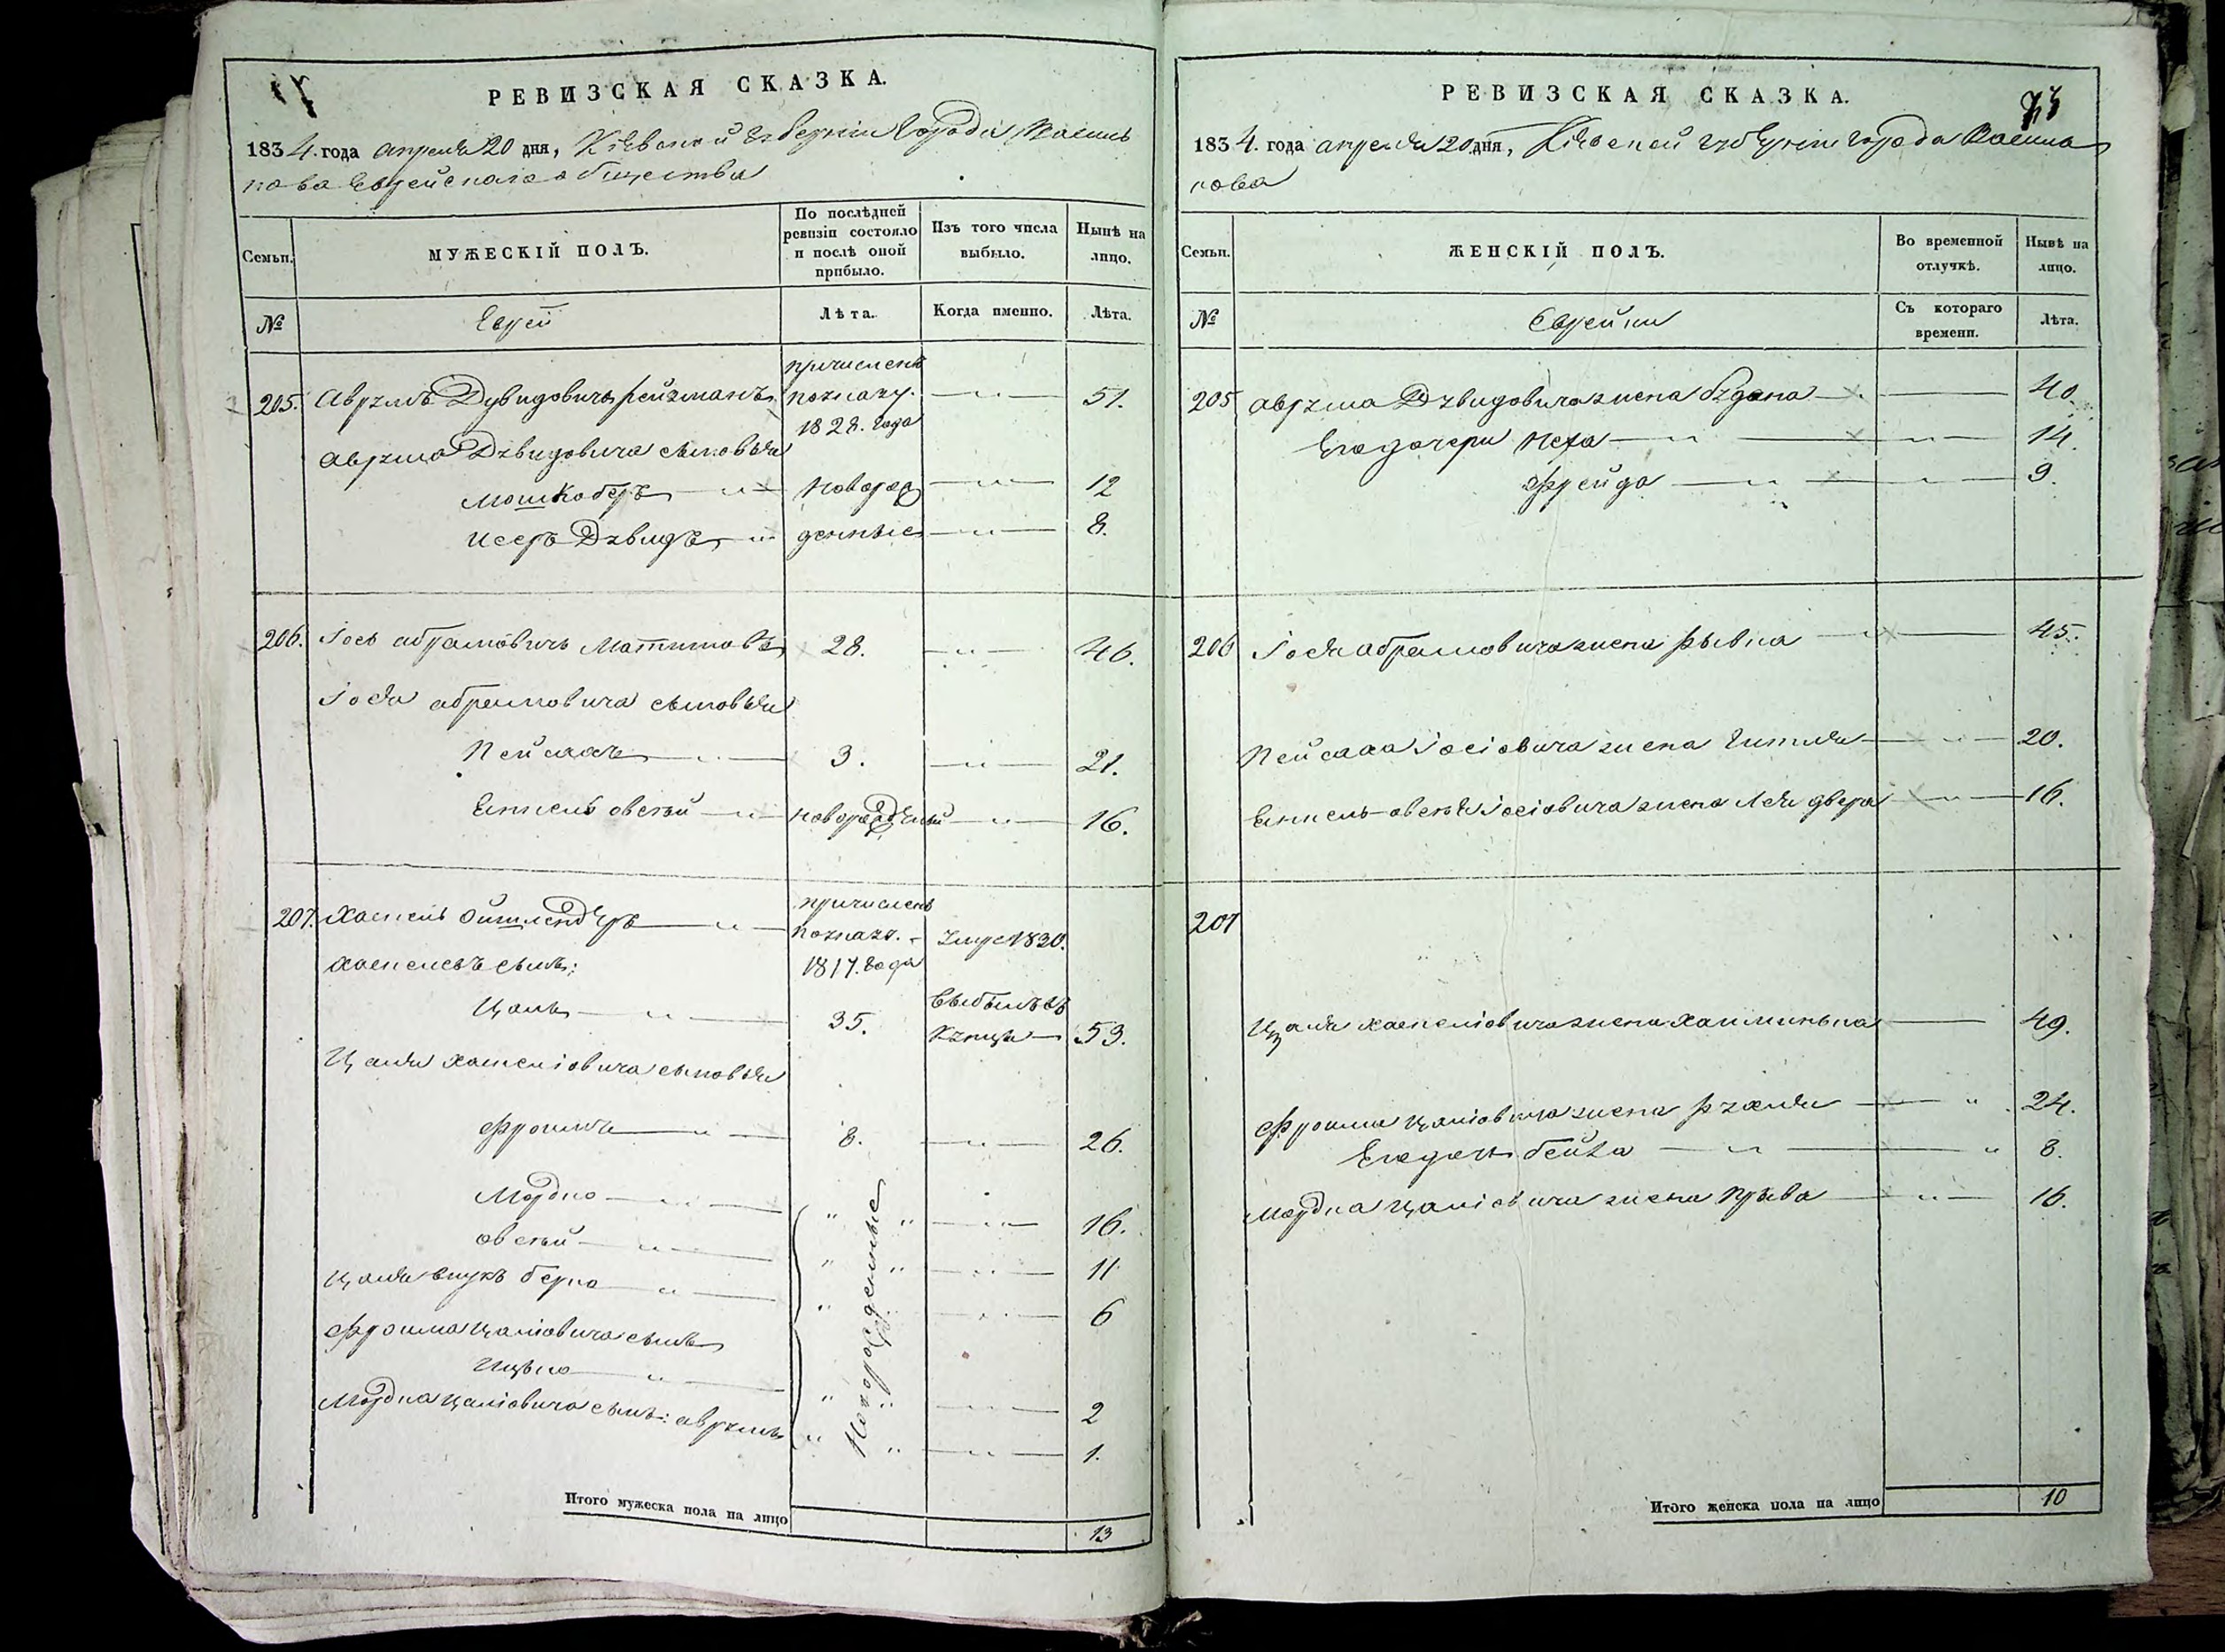 РЕВИЗСКАЯ СКАЗКА.
1834. года апреля 20 дня, Кіевской Губерніи Города Василь
кова Еврейскаго общества
Семьи.
МУЖЕСКІЙ ПОЛЪ.
По послѣдней ревизіи состояло и послѣ оной прибыло.
Изъ того числа выбыло.
Нынѣ на лицо.
№
Евреи
Лѣта.
Когда именно.
Лѣта.
причисленъ
205. Аврумъ Дувидовичъ Рейзманъ по указу 51.
1828. года
Аврума Дувидовича сыновья
Мошко беръ новорож 12
Исеръ Дувидъ денные 8.
206. Іось абрамовичъ 28. 46.
Іося абрамовича сыновья
Пейсахъ 3. 21.
овсей новорожденый 16.
причисленъ
207. Хаскель по указу. умре 1830.
Хаскелевъ сынъ: 1817. года
выбылъ въ
Цаль 35. купцы 53.
Цаля Хаскеліовича сыновья
Фроимъ 8. 26.
Мордко 16.
овсей 11
Цаля внукъ берко 6
Новорожденные
Фроима Цаліовича сынъ
Ицько 2
Мордка Цаліовича сынъ: аврумъ 1.
Итого мужеска пола на лицо
13
РЕВИЗСКАЯ СКАЗКА.
73
1834. года апреля 20 дня, Кіевской губерніи города Василь
кова
Семьи.
ЖЕНСКІЙ ПОЛЪ.
Во временной отлучкѣ.
Нынѣ на лицо.
№
Еврейки
Съ котораго времени.
Лѣта.
205 Аврума Дувидовича жена 40.
Его дочери Неха 14.
Фрейда 9.
206 Іося абрамовича жена Рывка 45.
Пейсаха Іосіовича жена Гитля 20.
овсея Іосіовича жена Лея двера 16.
207
Цаля Хаскеліовича жена 49.
Фроима Цаліовича жена Рухля 24.
Его дочь бейла 8.
Мордка Цаліовича жена 16.
Итого женска пола на лицо
10